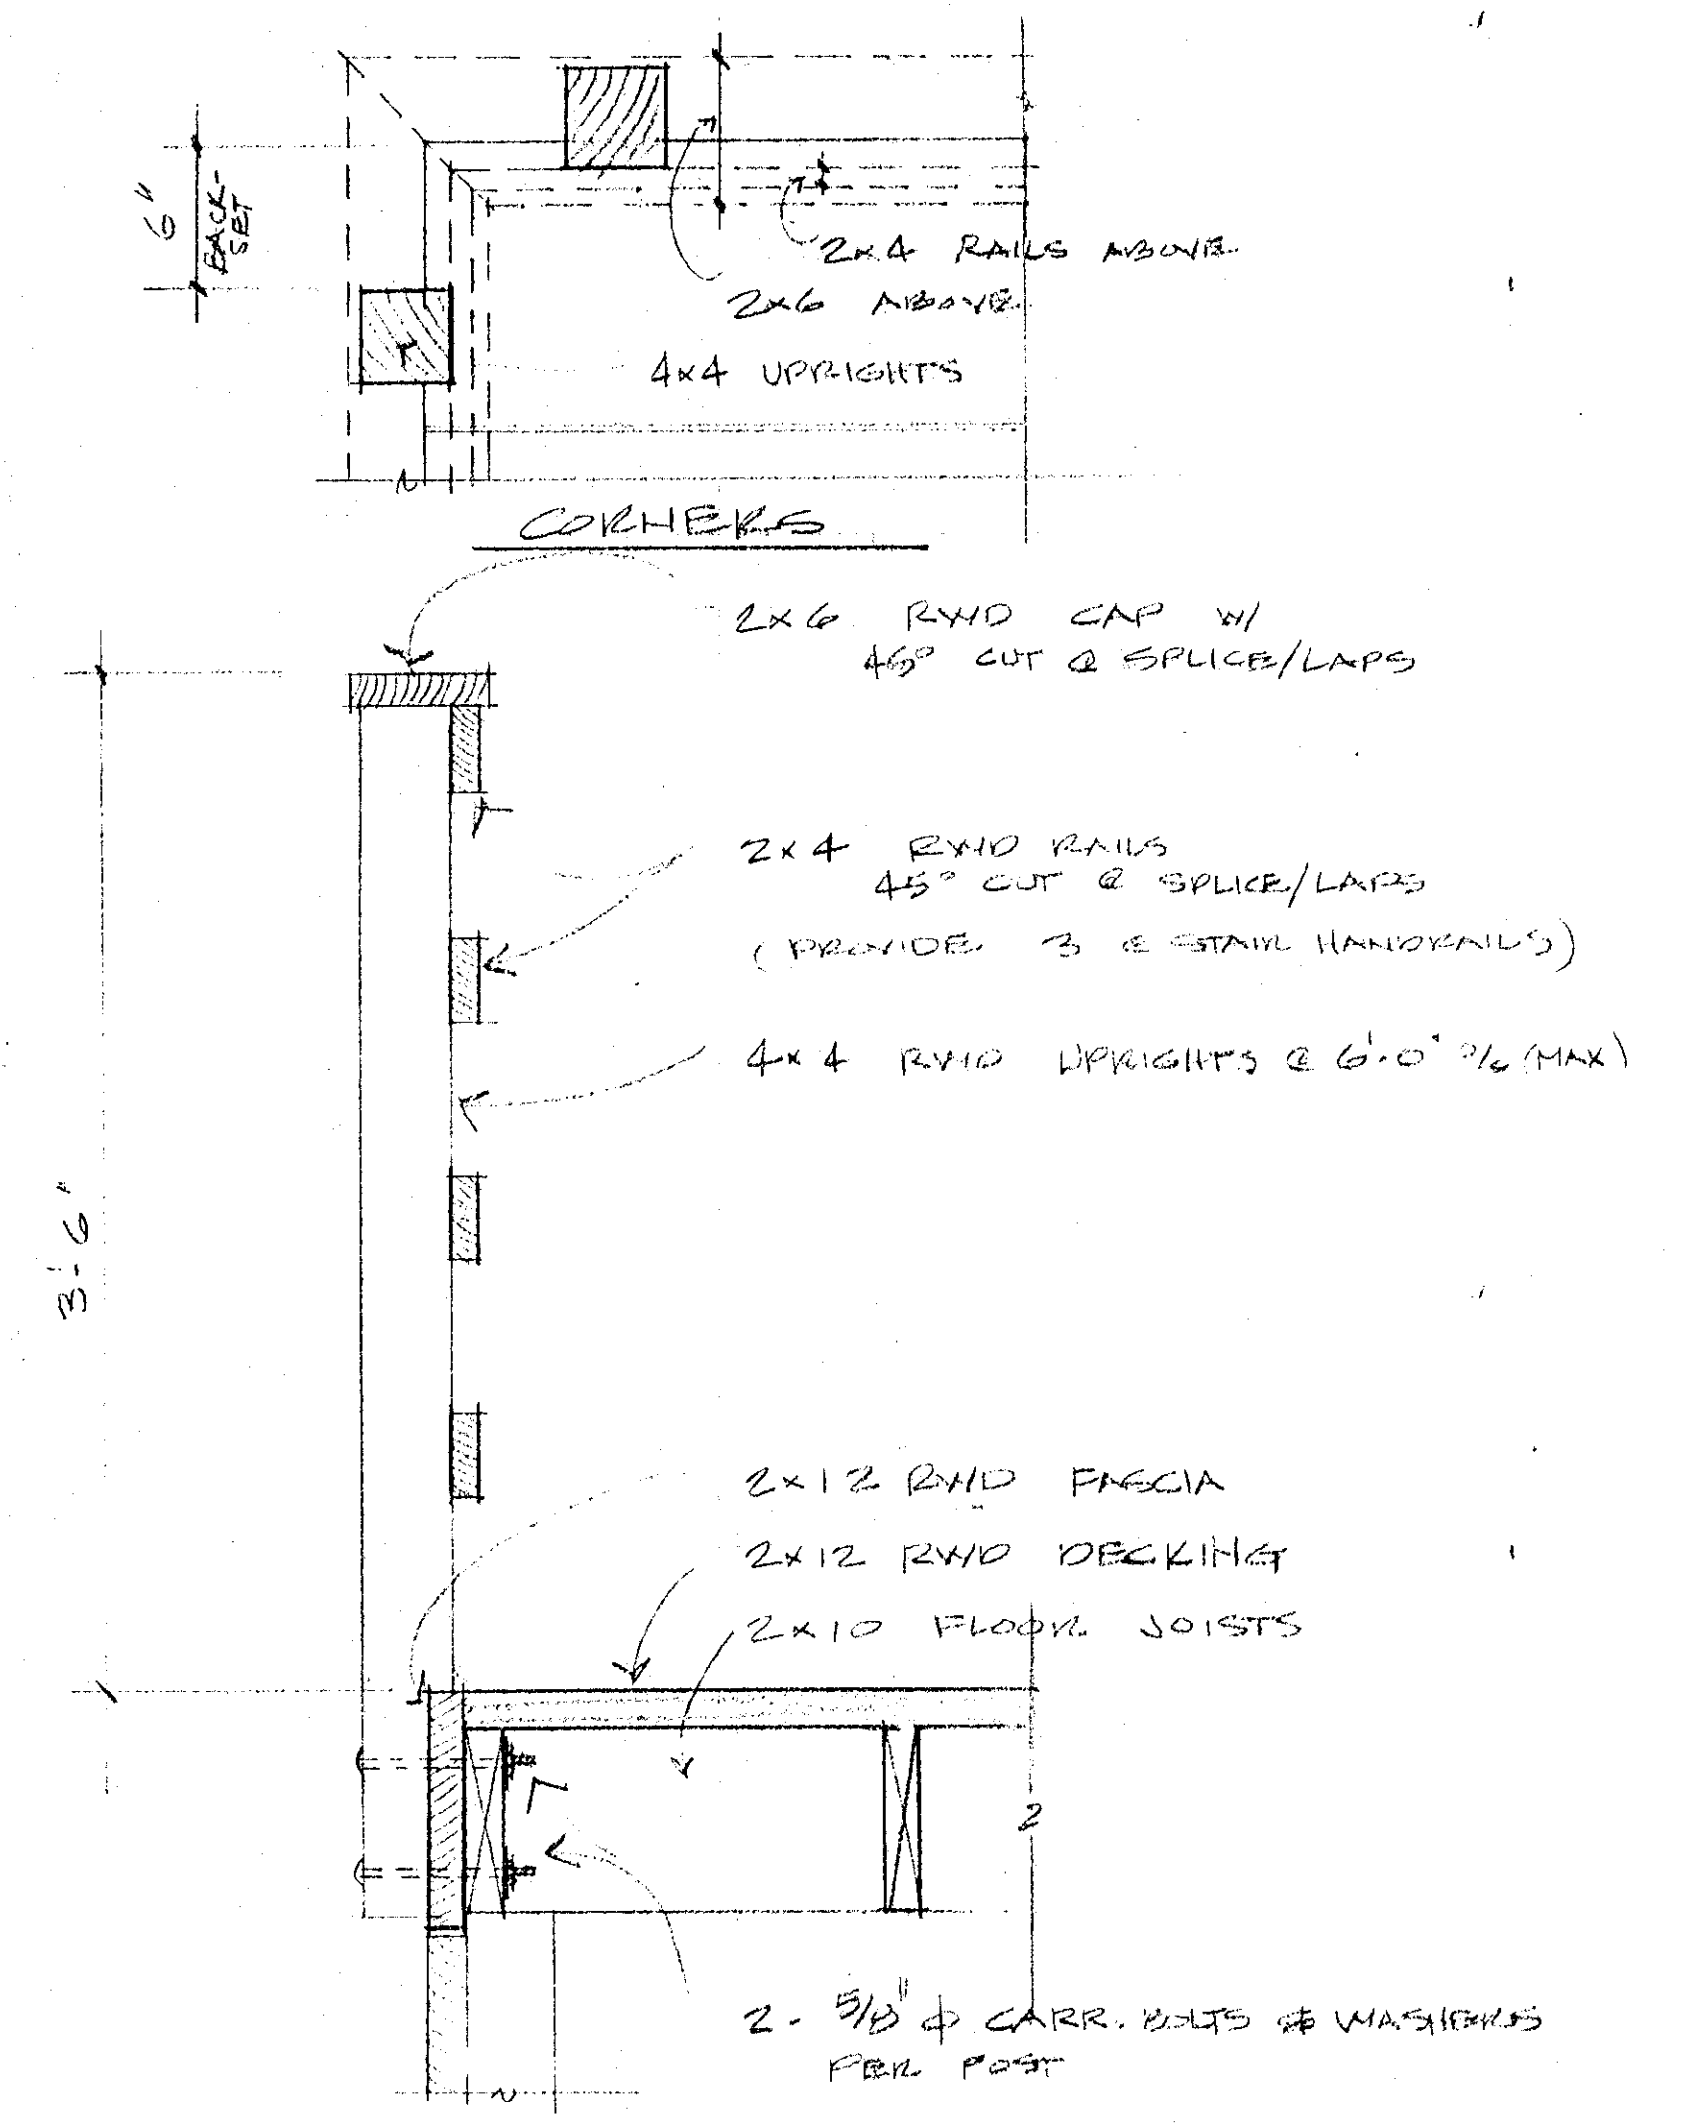 6" BACK-
SET
2x4 RAILS ABOVE
2x6 ABOVE
4x4 UPRIGHTS
CORNERS
2x6 RWD CAP W/
45° CUT @ SPLICE/LAPS
2x4 RWD RAILS
45° CUT @ SPLICE/LAPS
(PROVIDE 3 @ STAIR HANDRAILS)
4x4 RWD UPRIGHTS @ 6'-0" O/C (MAX)
3'-6"
2x12 RWD FASCIA
2x12 RWD DECKING
2x10 FLOOR JOISTS
2 - 5/8" ϕ CARR. BOLTS & WASHERS
PER POST